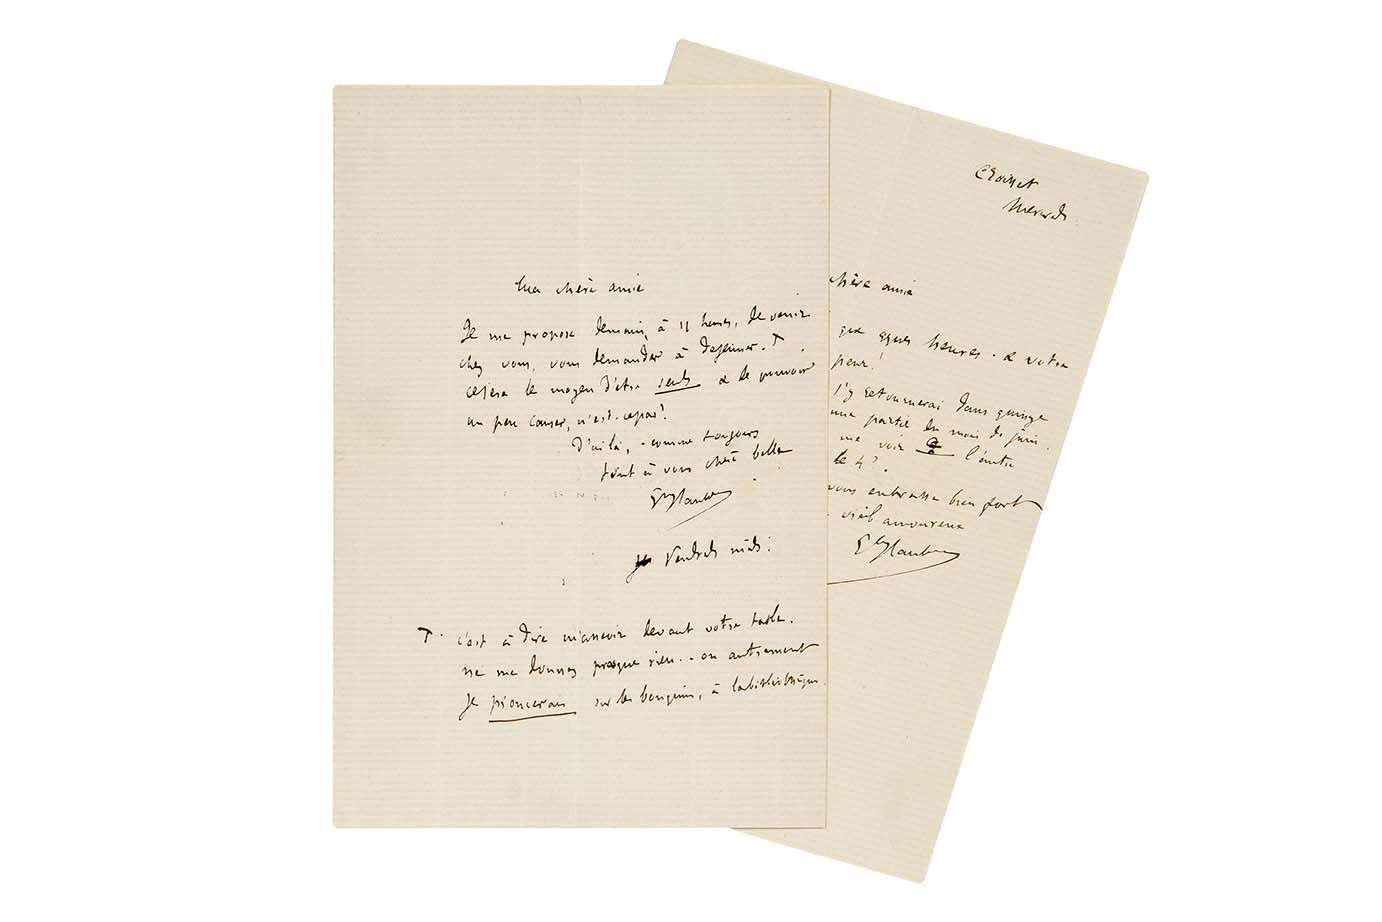 Ma chère amie
Je me propose demain, à 11 heures, de venir
chez vous, vous demander à déjeuner. T
ce sera le moyen d'être seuls & de pouvoir
un peu causer, n'est-ce pas?
D'ici là, - comme toujours
tout à vous chère belle
Gve Flaubert
Vendredi midi.
T. c'est à dire m'asseoir devant votre table.
ne me donnez presque rien. - ou autrement
je pioncerais sur les bouquins, à la bibliothèque.
Croisset
Mercredi
chère amie
que heures. & votre
peur!
J'y retournerai dans quinze
une partie du mois de juin.
me voir l'autre
le 4?
vous embrasse bien fort
vieil amoureux
Gve Flaubert